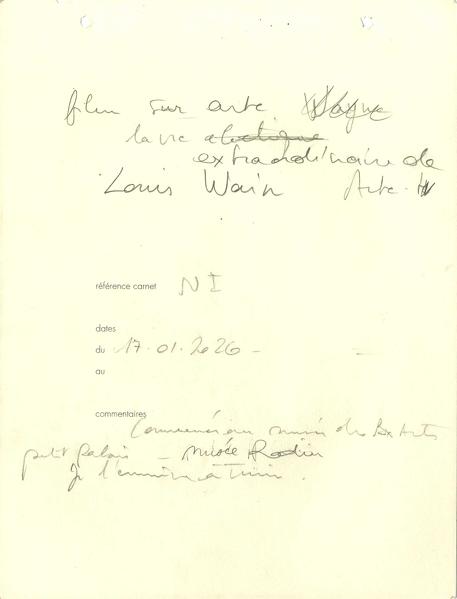 film sur arte
la vie
extraordinaire de
Louis Wain Arte.tv
référence carnet NI
dates
du 17.01.2026 -
au
commentaires
Commencé au musée des Bx Arts
petit Palais - musée Rodin
Je l'emmène à Turin.